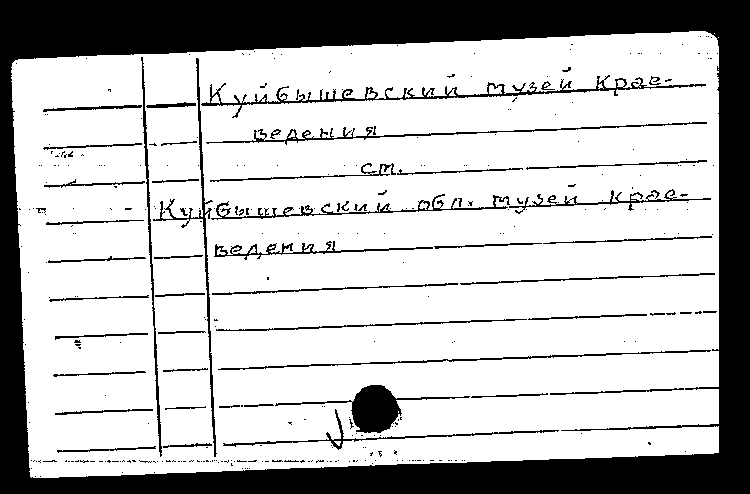 Куйбышевский музей крае-
ведения
см.
Куйбышевский обл. музей крае-
ведения